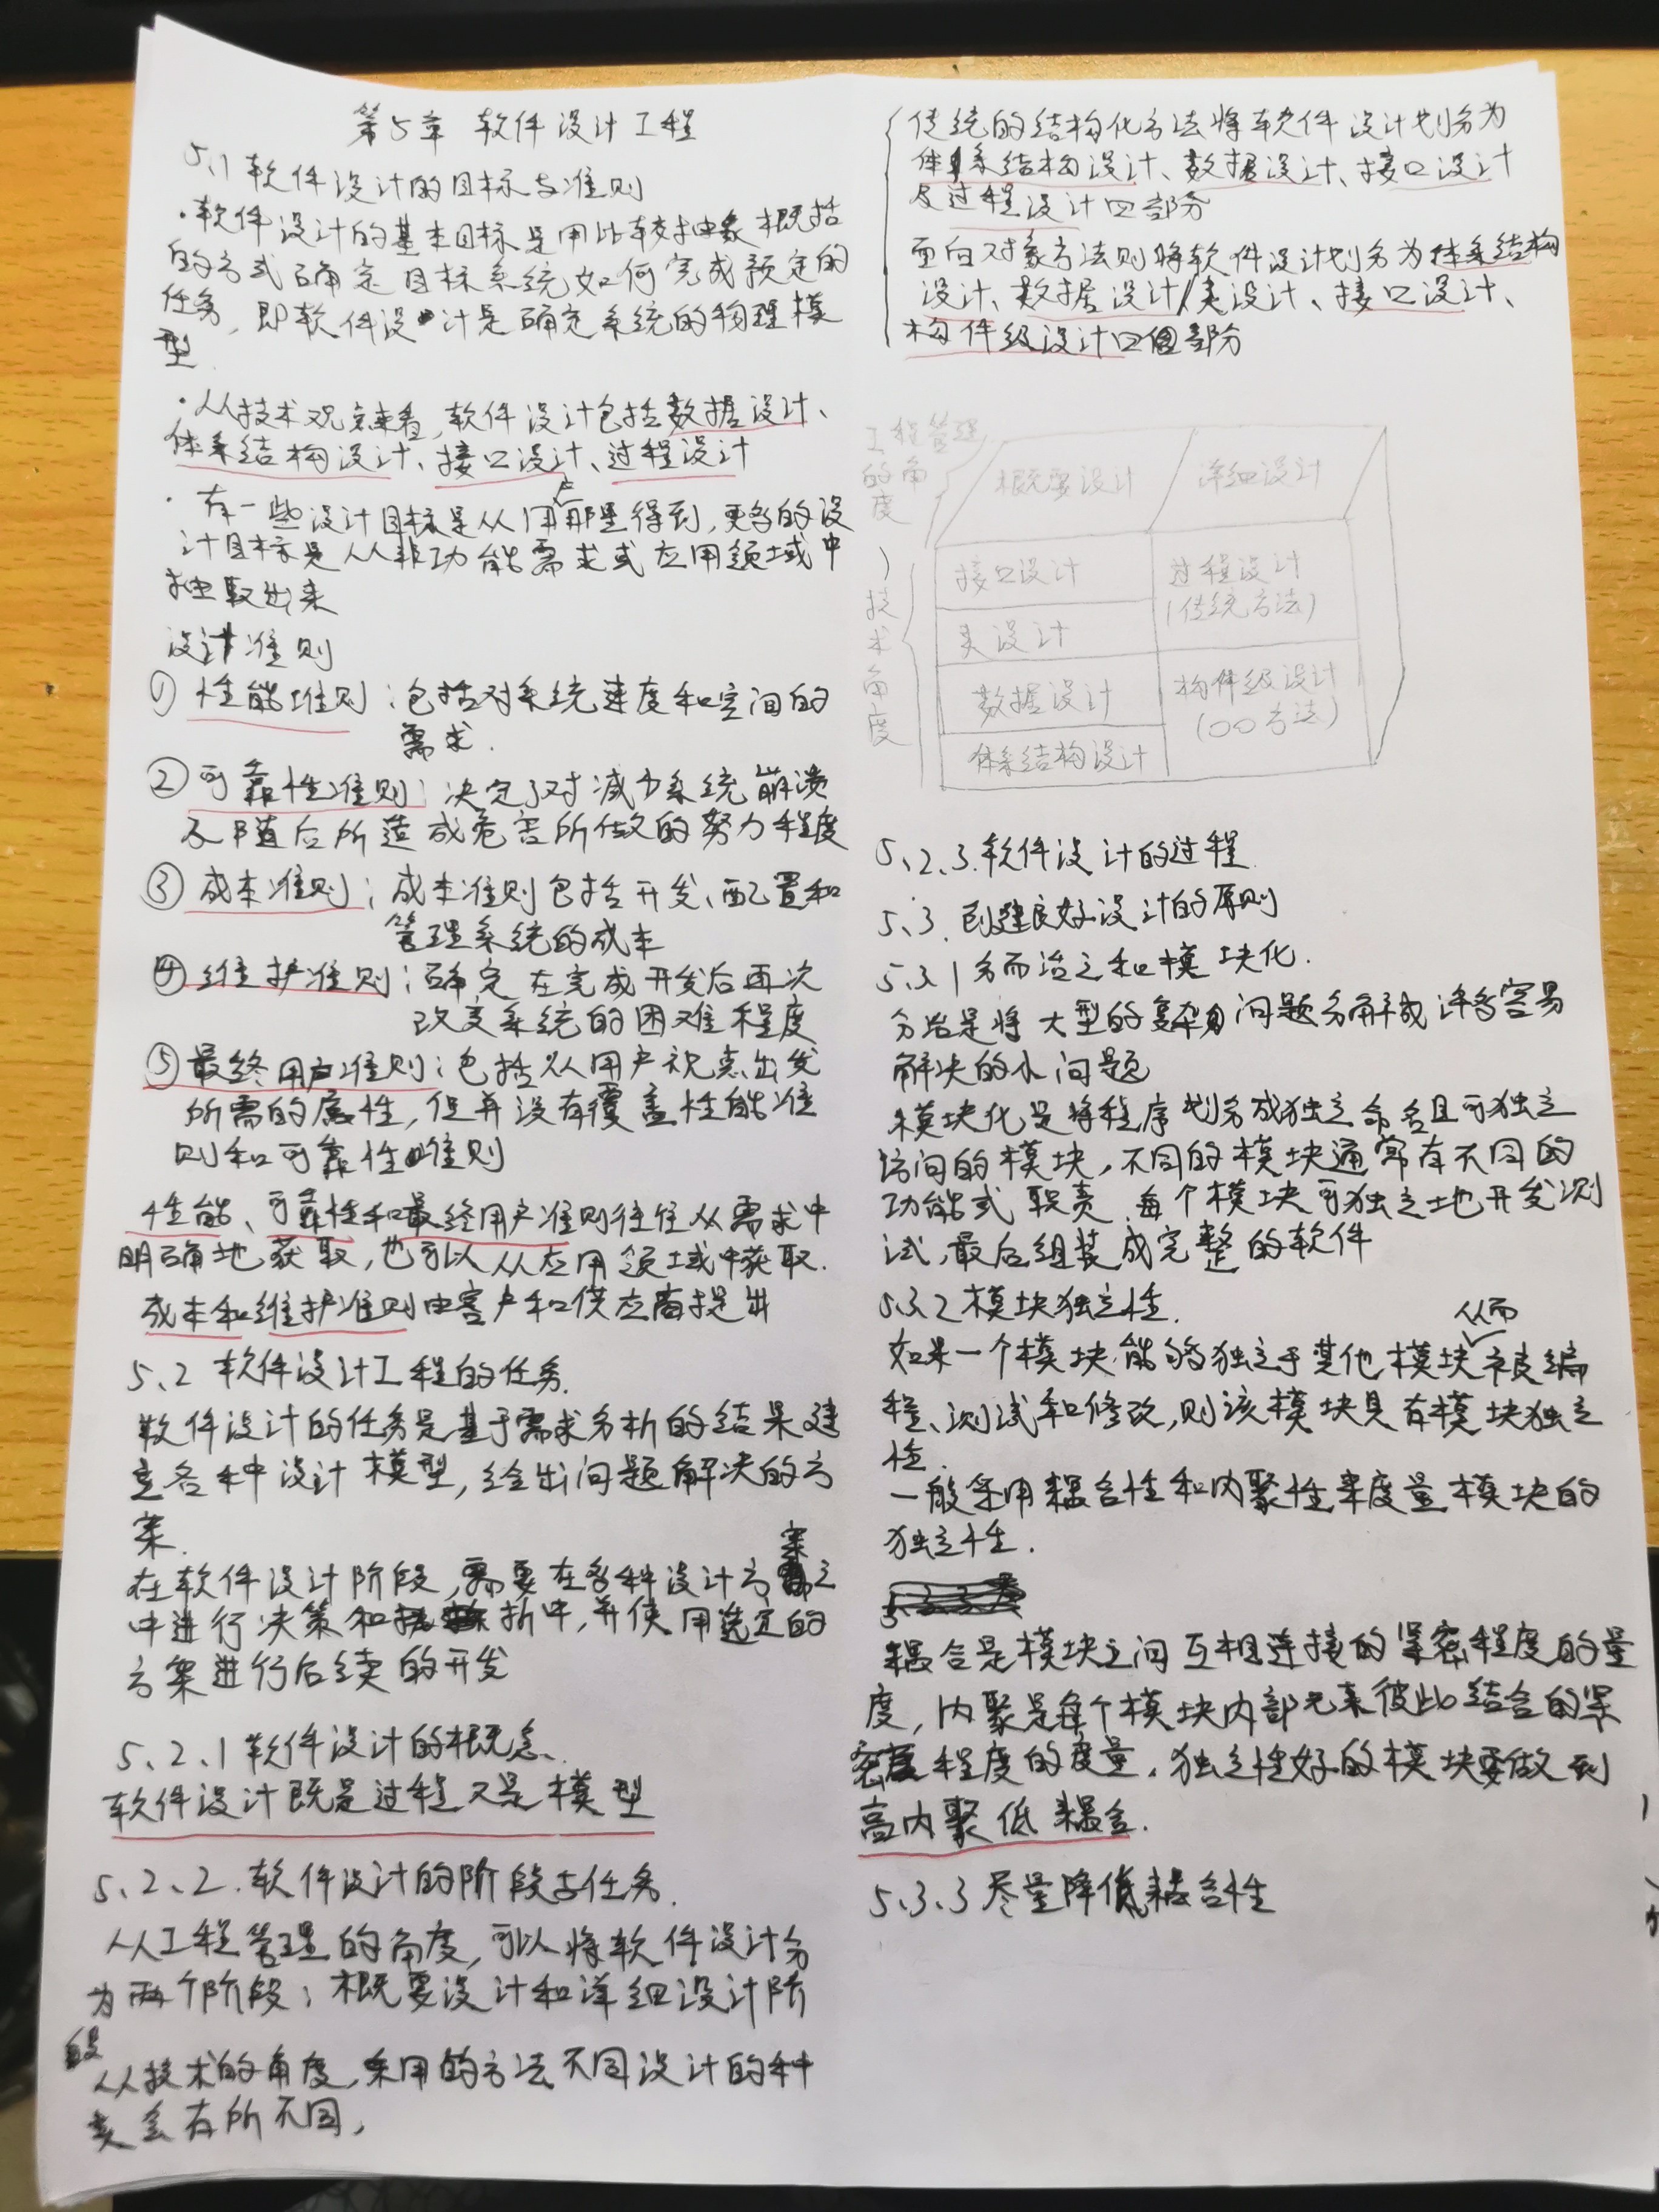 第5章 软件设计工程
5.1 软件设计的目标与准则
·软件设计的基本目标是用比较抽象概括
的方式确定目标系统如何完成预定的
任务，即软件设计是确定系统的物理模
型.
·从技术观点来看，软件设计包括数据设计、
体系结构设计、接口设计、过程设计
·有一些设计目标是从用户那里得到，更多的设
计目标是从非功能需求或应用领域中
抽取出来
设计准则
① 性能准则：包括对系统速度和空间的
需求.
② 可靠性准则：决定了对减少系统崩溃
及随后所造成危害所做的努力程度
③ 成本准则：成本准则包括开发、配置和
管理系统的成本
④ 维护准则：确定在完成开发后再次
改变系统的困难程度
⑤ 最终用户准则：包括从用户视点出发
所需的属性，但并没有覆盖性能准
则和可靠性准则
性能、可靠性和最终用户准则往往从需求中
明确地获取，也可以从应用领域中获取.
成本和维护准则由客户和供应商提出
5.2 软件设计工程的任务.
软件设计的任务是基于需求分析的结果建
立各种设计模型，给出问题解决的方
案.
在软件设计阶段，需要在各种设计方案之
中进行决策和折中，并使用选定的
方案进行后续的开发
5.2.1 软件设计的概念.
软件设计既是过程又是模型
5.2.2. 软件设计的阶段与任务.
从工程管理的角度，可以将软件设计分
为两个阶段：概要设计和详细设计阶
段
从技术的角度，采用的方法不同设计的种
类会有所不同，
传统的结构化方法将软件设计划分为
体系结构设计、数据设计、接口设计
及过程设计四部分
面向对象方法则将软件设计划分为体系结构
设计、数据设计/类设计、接口设计、
构件级设计四个部分
工程管理
的角
度
概要设计 详细设计
技术角度
接口设计
过程设计
(传统方法)
类设计
数据设计
构件级设计
(OO方法)
体系结构设计
5.2.3. 软件设计的过程
5.3. 创建良好设计的原则
5.3.1 分而治之和模块化.
分治是将大型的复杂的问题分解成许多容易
解决的小问题
模块化是将程序划分成独立命名且可独立
访问的模块，不同的模块通常有不同的
功能或职责. 每个模块可独立地开发测
试，最后组装成完整的软件
5.3.2 模块独立性.
如果一个模块能够独立于其他模块从而被编
程、测试和修改，则该模块具有模块独立
性.
一般采用耦合性和内聚性来度量模块的
独立性.
耦合是模块之间互相连接的紧密程度的量
度，内聚是每个模块内部元素彼此结合的紧
密程度的度量. 独立性好的模块要做到
高内聚低耦合.
5.3.3 尽量降低耦合性